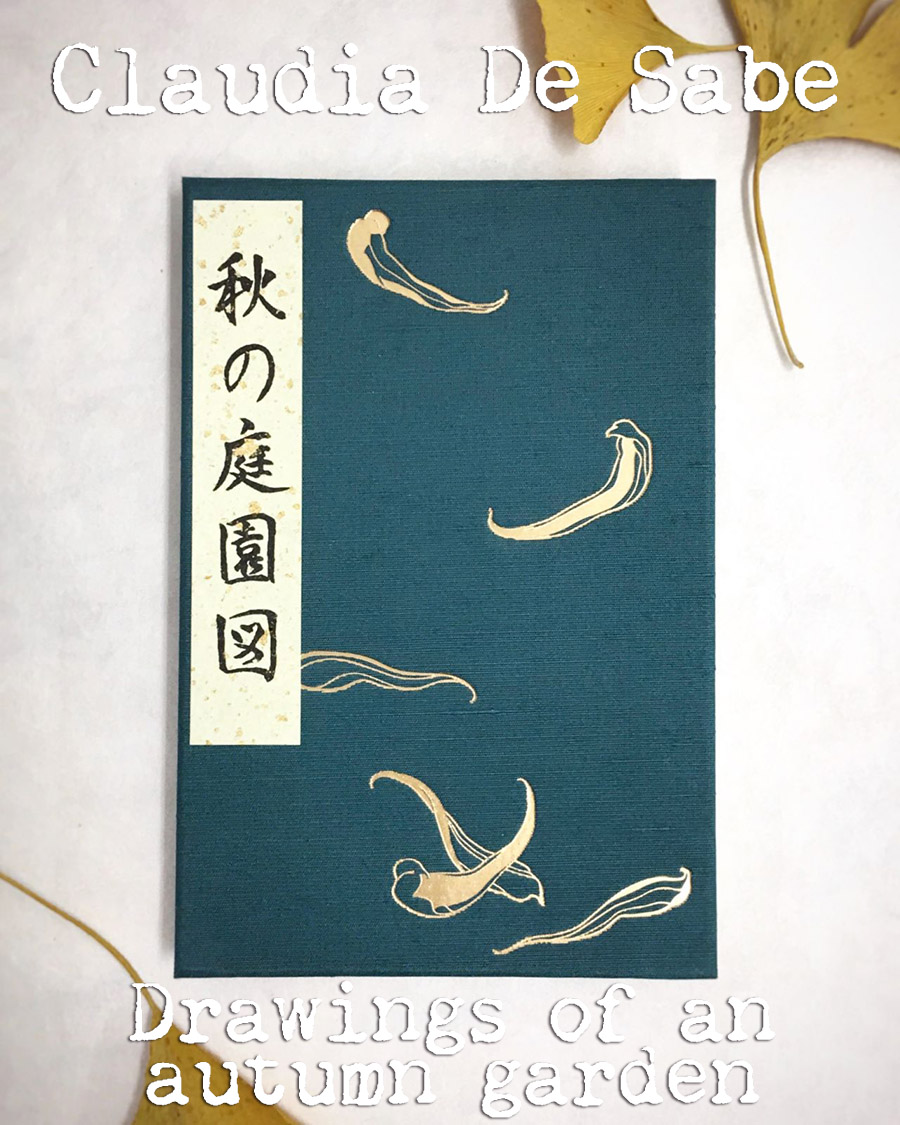 Claudia De Sabe
秋の庭園図
Drawings of an
autumn garden